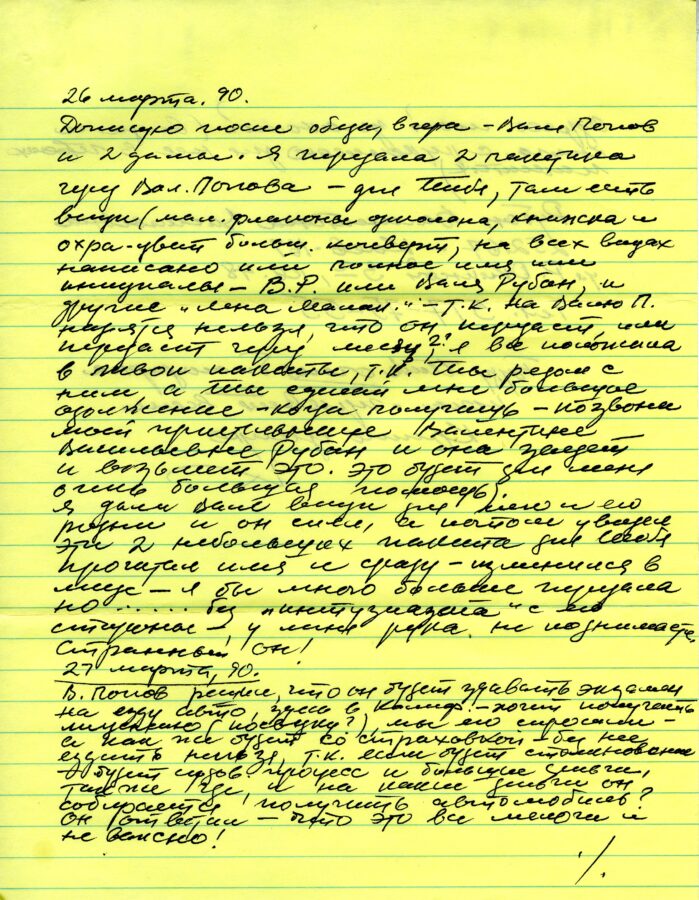 26 марта. 90.
Дописую после обеда, вчера – Валя Попов
и 2 дамы. Я передала 2 пакетика
через Вал. Попова – для Тебя, там есть
вещи (мал. флаконы одколона, книжка и
охра-цвет больш. конверт, на всех вещах
написано или полное имя или
инициалы – В.Р. или Валя Рубан, и
другие "Лена Малаи." – т.к. на Валю П.
нельзя, что он передаст, или
передаст через месяц?, я все положила
в твои пакеты, т.к. Ты рядом с
ним а Ты сделай мне большое
одолжение – когда получишь – позвони
моей приятельнице Валентине
Васильевне Рубан и она заедет
и возьмет это. Это будет для меня
очень большая помощь)
Я дала Вале вещи для него и его
родни и он сиял, а потом увидел
эти 2 небольших пакета для Тебя
прочитал имя и сразу – изменился в
лице – я бы много больше передала
но ...... без "интузиазта" с его
стороны – у меня рука не поднимается.
Странный он!
27 марта, 90.
В. Попов решил, что он будет здавать экзамен
на езду авто, здесь в Калиф. – хочит получить
?), мы его спросили –
а как же будет со страховкой – без нее
ездить нельзя, т.к. если будет столкновение
– будет судов. процесс и большие деньги,
также где, и на какие деньги он
собирается получить автомобиль?
Он ответил – что это все мелочи и
не важно!
./.